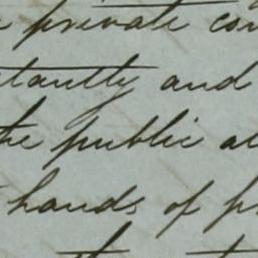 private con
stantly and
the public a
hands of p